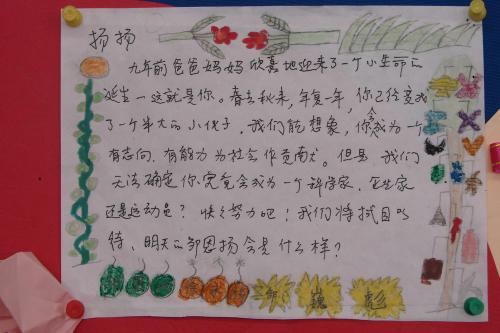 扬扬
九年前爸爸妈妈欣喜地迎来了一个小生命的
诞生—这就是你。春去秋来,年复一年,你已经变成
了一个半大的小伙子,我们能想象,你会成为一个
有志向、有能力为社会作贡献犬。但是我们
无法确定你究竟会成为一个科学家、企业家
还是运动员?快快努力吧!我们将拭目以
待、明天的邹恩扬会是什么样?
邹 魏 彪